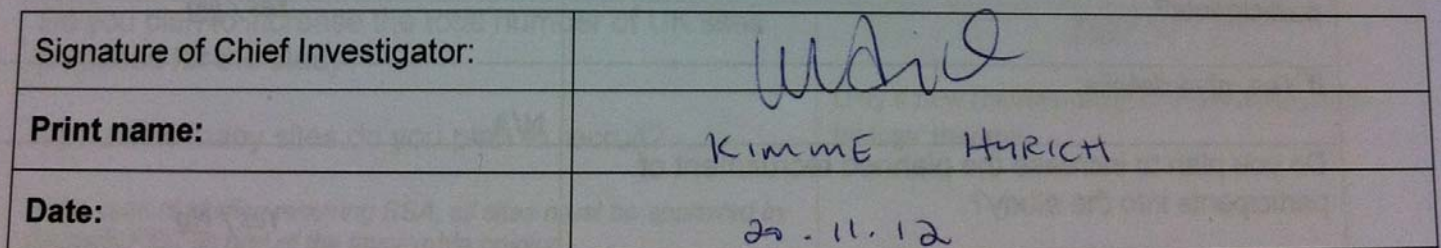 Signature of Chief Investigator:
Print name: KIMME HYRICH
Date: 20.11.12